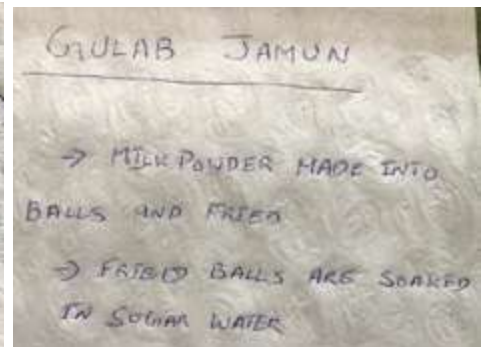 GULAB JAMUN
→ MILK POWDER MADE INTO
BALLS AND FRIED
→ FRIED BALLS ARE SOAKED
IN SUGAR WATER